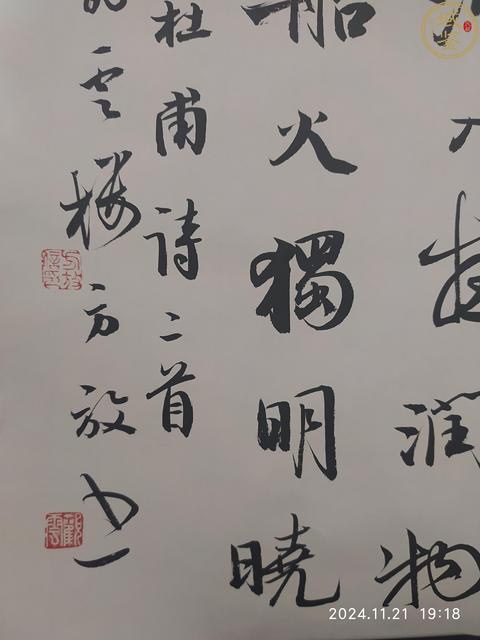 潤物
船火獨明曉
杜甫詩二首
雲樓方放書
2024.11.21 19:18